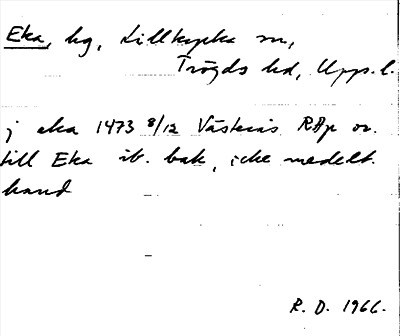 Eka, hg, Lillkyrka sn,
Trögds hd, Upps. l.
j eka 1473 8/12 Västerås RAp or.
till Eka ib. bak, icke medelt.
hand
R. D. 1966.